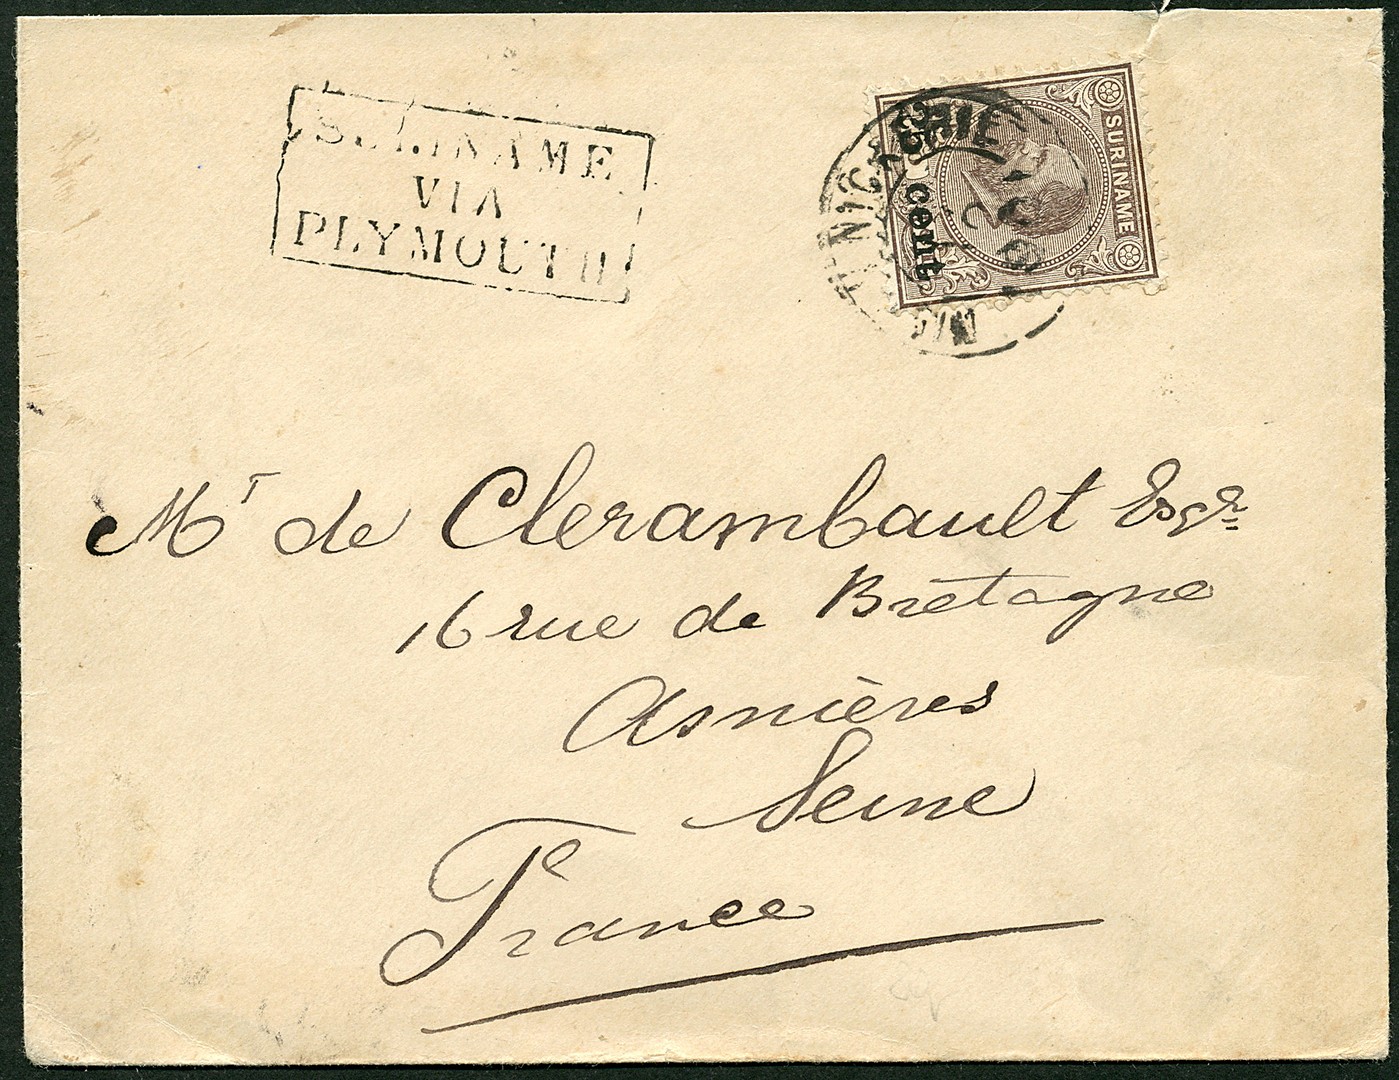 SURINAME
VIA
PLYMOUTH
SURINAME
25 cent
NICKERIE
Mr de Clerambault Esqr
16 rue de Bretagne
Asnières
Seine
France